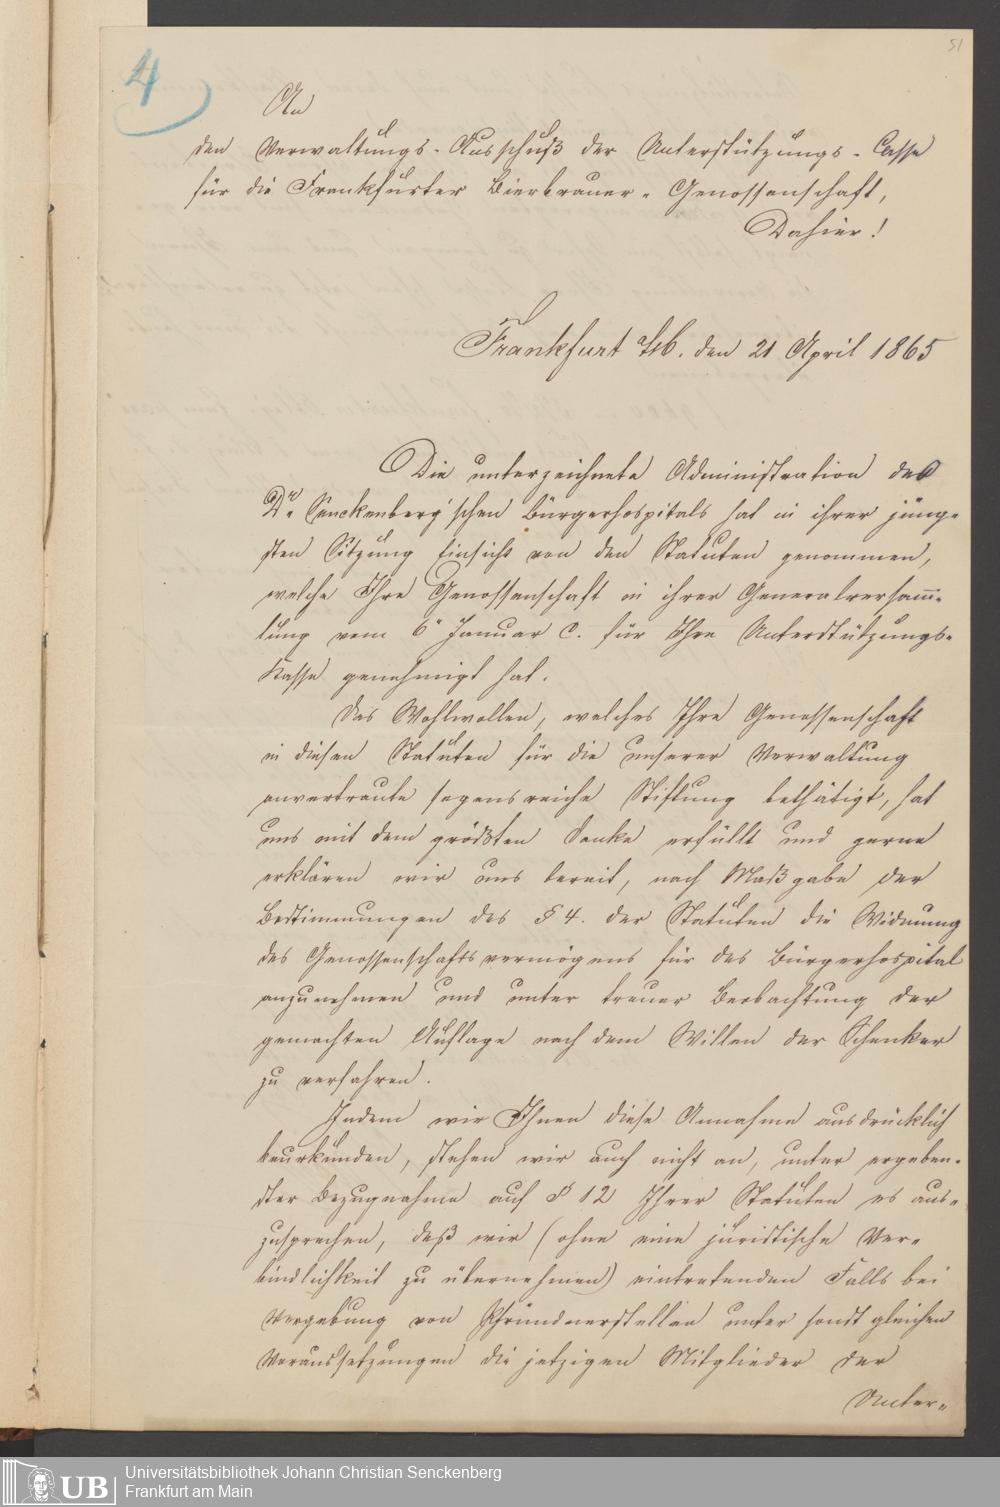 51
4
An
den Verwaltungs-Ausschuß der Unterstützungs-Casse
für die Frankfurter Bierbrauer-Genossenschaft,
Dahier!
Frankfurt a/M. den 21 April 1865
Die unterzeichnete Administration des
Dr. Senckenberg'schen Bürgerhospitals hat in ihrer jüng-
sten Sitzung Einsicht von den Statuten genommen,
welche Ihre Genossenschaft in ihrer Generalversam̅-
lung vom 6ⁿ Januar c. für Ihre Unterstützungs-
Kasse genehmigt hat.
Das Wohlwollen, welches Ihre Genossenschaft
in diesen Statuten für die unserer Verwaltung
anvertraute segensreiche Stiftung bethätigt, hat
uns mit dem größten Danke erfüllt und gerne
erklären wir uns bereit, nach Maßgabe der
Bestimmungen des § 4. der Statuten die Widmung
des Genossenschaftsvermögens für das Bürgerhospital
anzunehmen und unter treuer Beobachtung der
gemachten Auflage nach dem Willen der Schenker
zu verfahren.
Indem wir Ihnen diese Annahme ausdrücklich
beurkunden, stehen wir auch nicht an, unter ergeben-
ster Bezugnahme auf § 12 Ihrer Statuten es aus-
zusprechen, daß wir (ohne eine juristische Ver-
bindlichkeit zu übernehmen) eintretenden Falls bei
Vergebung von Pfründnerstellen unter sonst gleichen
Voraussetzungen die jetzigen Mitglieder der
Unter-
UB
Universitätsbibliothek Johann Christian Senckenberg
Frankfurt am Main